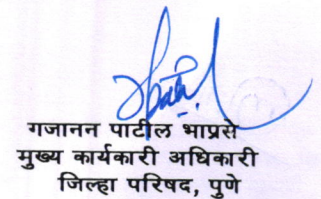 गजानन पाटील भाप्रसे
मुख्य कार्यकारी अधिकारी
जिल्हा परिषद, पुणे